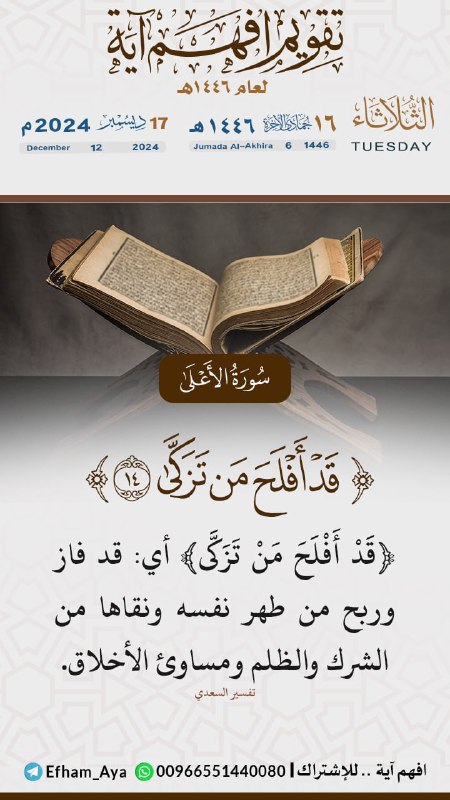 تقويم افهم آية
لعام ١٤٤٦هـ
الثُّلَاثَاء
TUESDAY
١٦ جمادى الآخرة ١٤٤٦هـ
Jumada Al-Akhira 6 1446
17 ديسمبر 2024م
December 12 2024
سُورَةُ الأَعْلَىٰ
﴿ قَدْ أَفْلَحَ مَن تَزَكَّىٰ ١٤ ﴾
﴿قَدْ أَفْلَحَ مَنْ تَزَكَّى﴾ أي: قد فاز
وربح من طهر نفسه ونقاها من
الشرك والظلم ومساوئ الأخلاق.
تفسير السعدي
افهم آية .. للإشتراك | 00966551440080 Efham_Aya